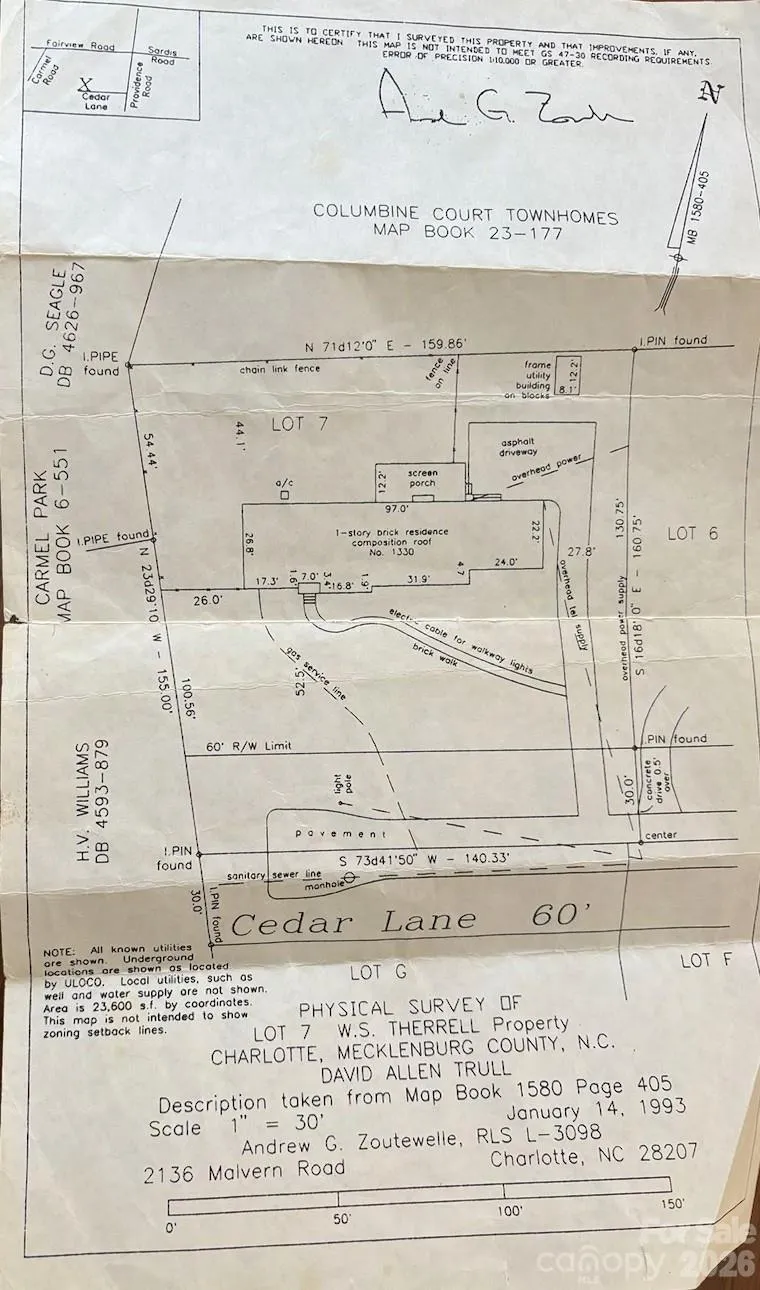 THIS IS TO CERTIFY THAT I SURVEYED THIS PROPERTY AND THAT IMPROVEMENTS, IF ANY,
ARE SHOWN HEREON THIS MAP IS NOT INTENDED TO MEET GS 47-30 RECORDING REQUIREMENTS.
ERROR OF PRECISION 1:10,000 OR GREATER.
Fairview Road
Sardis
Road
Carmel
Road
Providence
Road
X
Cedar
Lane
N
MB 1580-405
COLUMBINE COURT TOWNHOMES
MAP BOOK 23-177
D.G. SEAGLE
DB 4626-967
I.PIPE
found
N 71d12'0" E - 159.86'
I.PIN found
chain link fence
fence
on line
frame
utility
building
on blocks
12.2'
8.1'
LOT 7
44.1'
54.44'
asphalt
driveway
overhead power
a/c
screen
porch
12.2'
CARMEL PARK
MAP BOOK 6-551
97.0'
1-story brick residence
composition roof
No. 1330
26.8'
22.2'
27.8'
130.75'
S 16d18'0" E - 160.75'
LOT 6
I.PIPE found
17.3'
1.6'
7.0'
3.4'
16.8'
1.9'
31.9'
4.7
24.0'
26.0'
N 23d29'10" W - 155.00'
overhead tel supply
overhead power supply
electric cable for walkway lights
brick walk
gas service line
52.5'
100.56'
60' R/W Limit
I.PIN found
H.V. WILLIAMS
DB 4593-879
light
pole
concrete
drive 0.5'
over
30.0'
pavement
center
I.PIN
found
S 73d41'50" W - 140.33'
sanitary sewer line
manhole
30.0'
I.PIN found
Cedar Lane 60'
NOTE: All known utilities
are shown. Underground
locations are shown as located
by ULOCO. Local utilities, such as
well and water supply are not shown.
Area is 23,600 s.f. by coordinates.
This map is not intended to show
zoning setback lines.
LOT G
LOT F
PHYSICAL SURVEY OF
LOT 7 W.S. THERRELL Property
CHARLOTTE, MECKLENBURG COUNTY, N.C.
DAVID ALLEN TRULL
Description taken from Map Book 1580 Page 405
Scale 1" = 30' January 14, 1993
Andrew G. Zoutewelle, RLS L-3098
2136 Malvern Road Charlotte, NC 28207
0' 50' 100' 150'
For Sale
canopy 2026
MLS